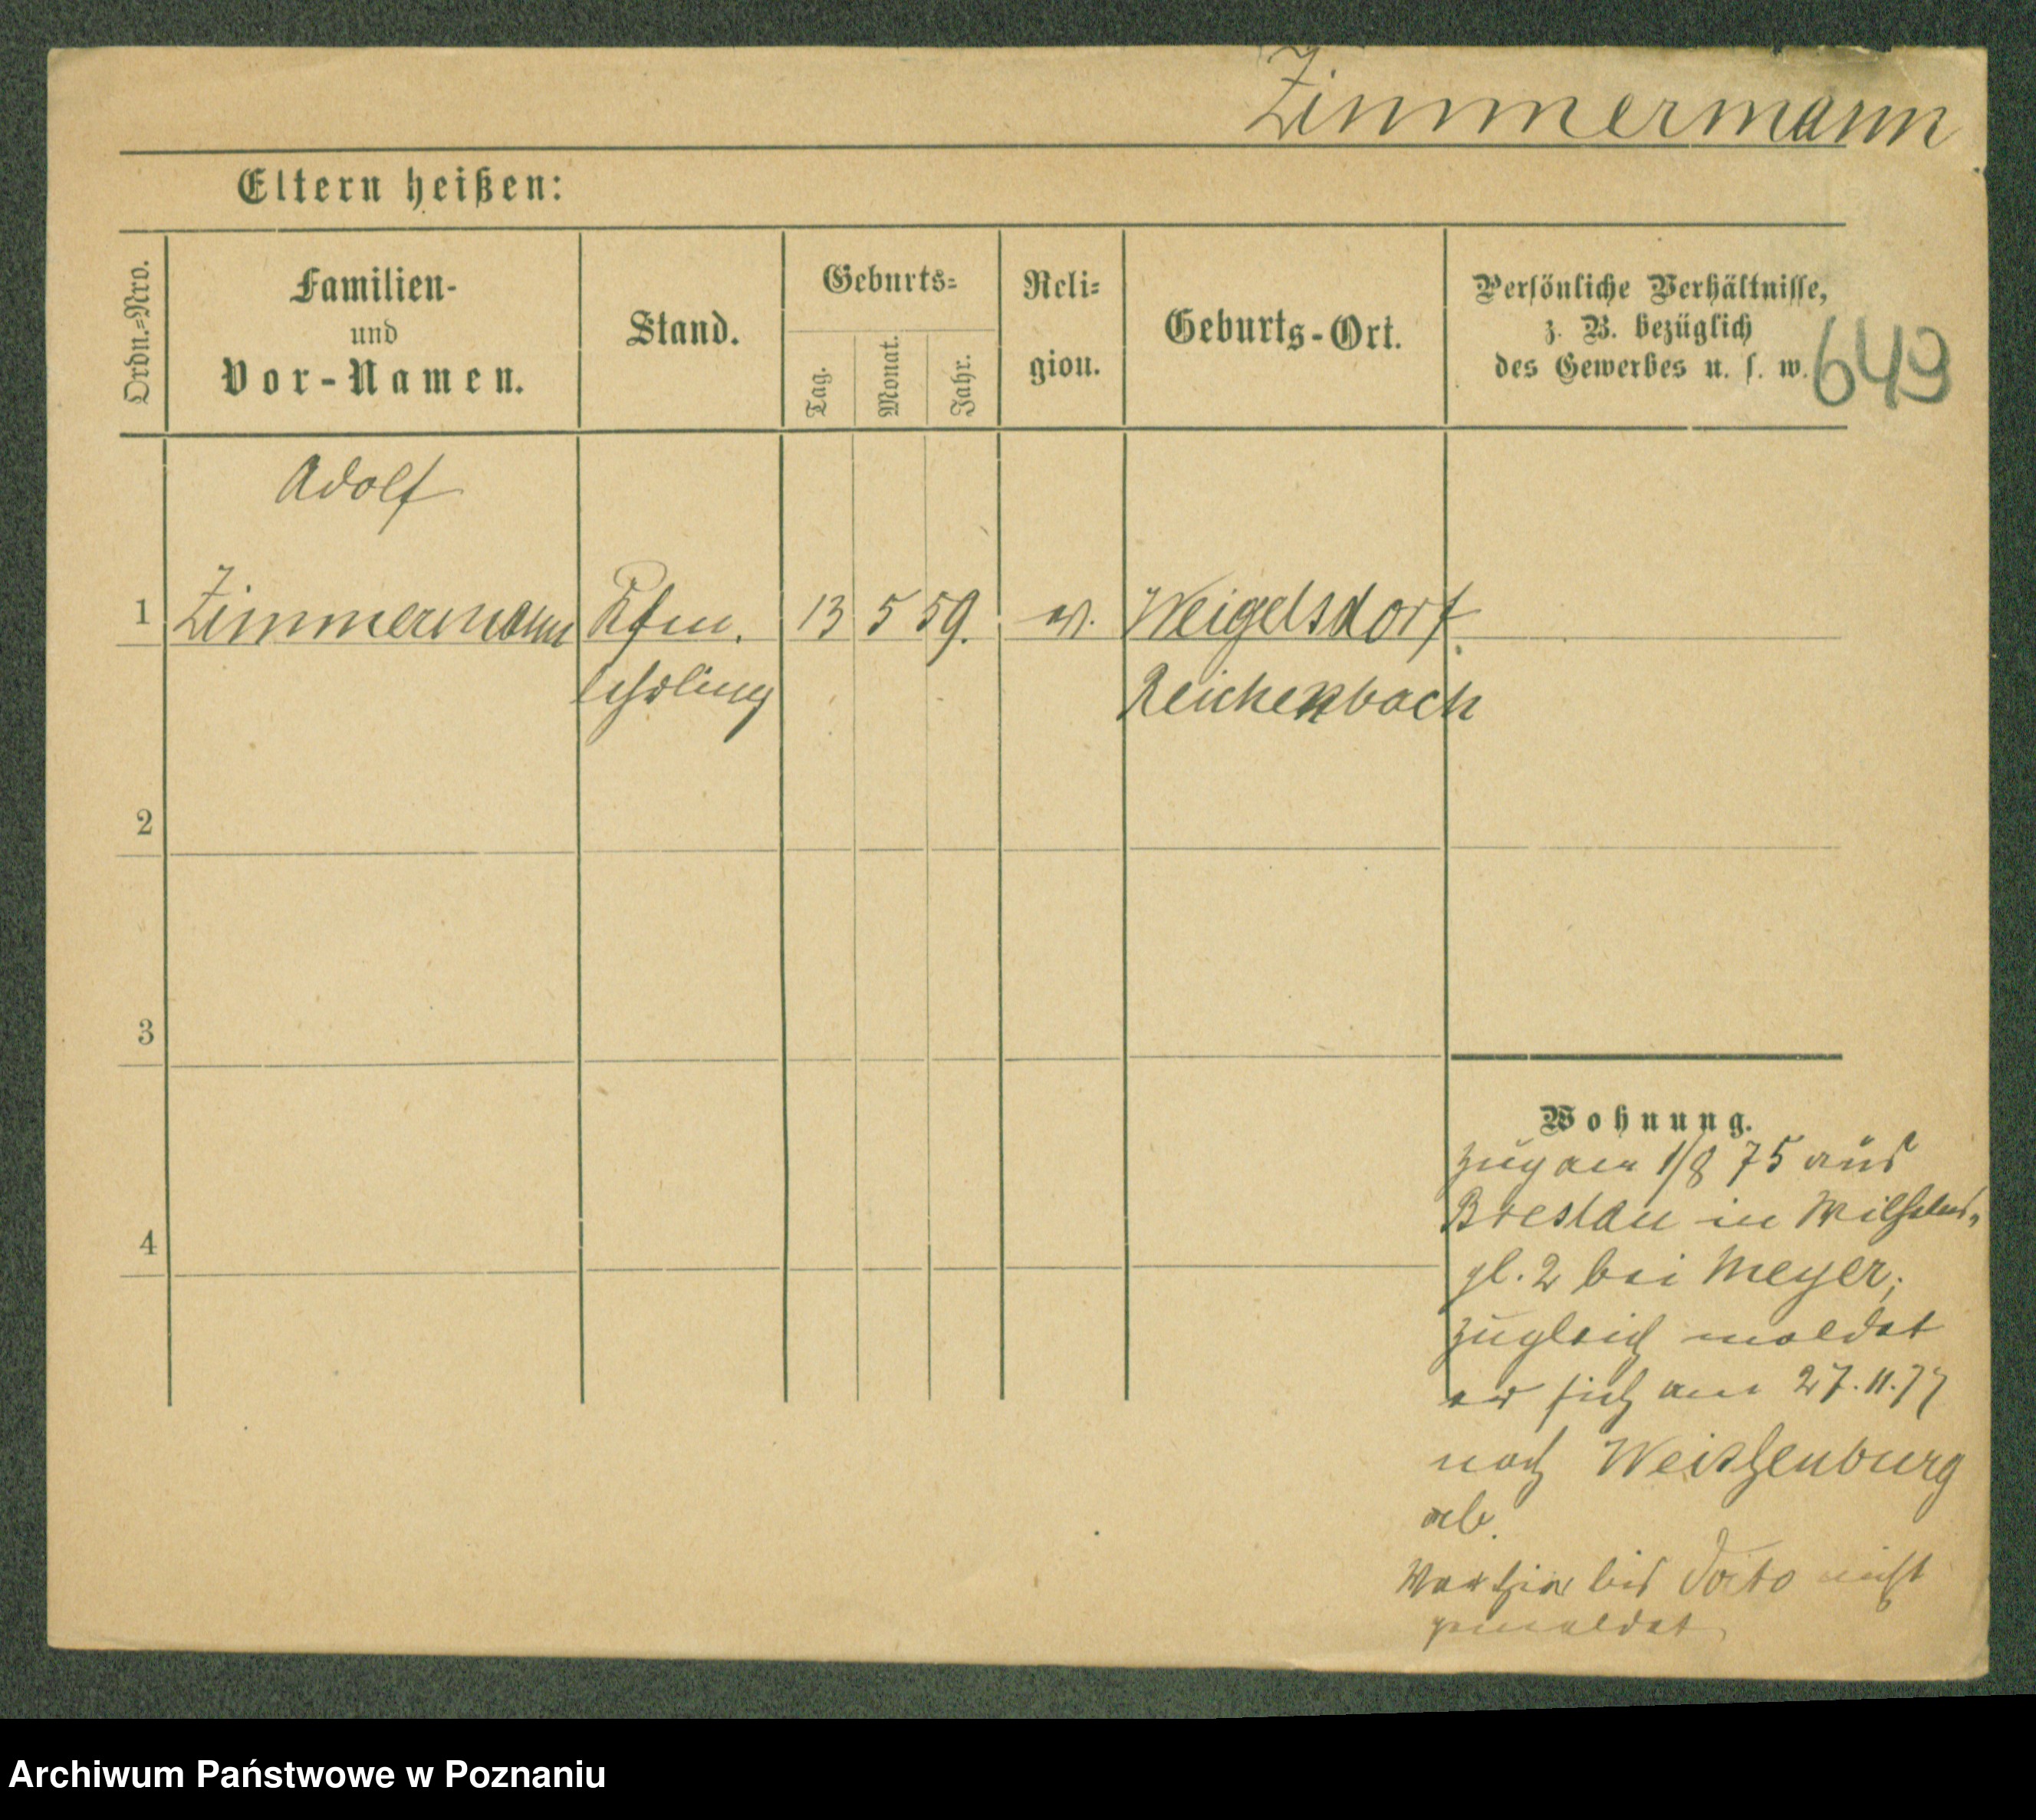 Zimmermann
Eltern heißen:
Ordn.=Nro.
Familien-
und
Vor-Namen.
Stand.
Geburts=
Tag.
Monat.
Jahr.
Reli=
gion.
Geburts-Ort.
Persönliche Verhältnisse,
z. B. bezüglich
des Gewerbes u. s. w.
649
Adolf
1 Zimmermann Kfm. 13 5 59. Weigelsdorf
lehrling Reichenbach
2
3
4
Wohnung.
zug am 1/8 75 aus
Breslau in Wilhelms-
pl. 2 bei Meyer;
zugleich meldet
er sich am 27.11.77
nach Weißenburg
ab.
War hier bis dato nicht
gemeldet
Archiwum Państwowe w Poznaniu